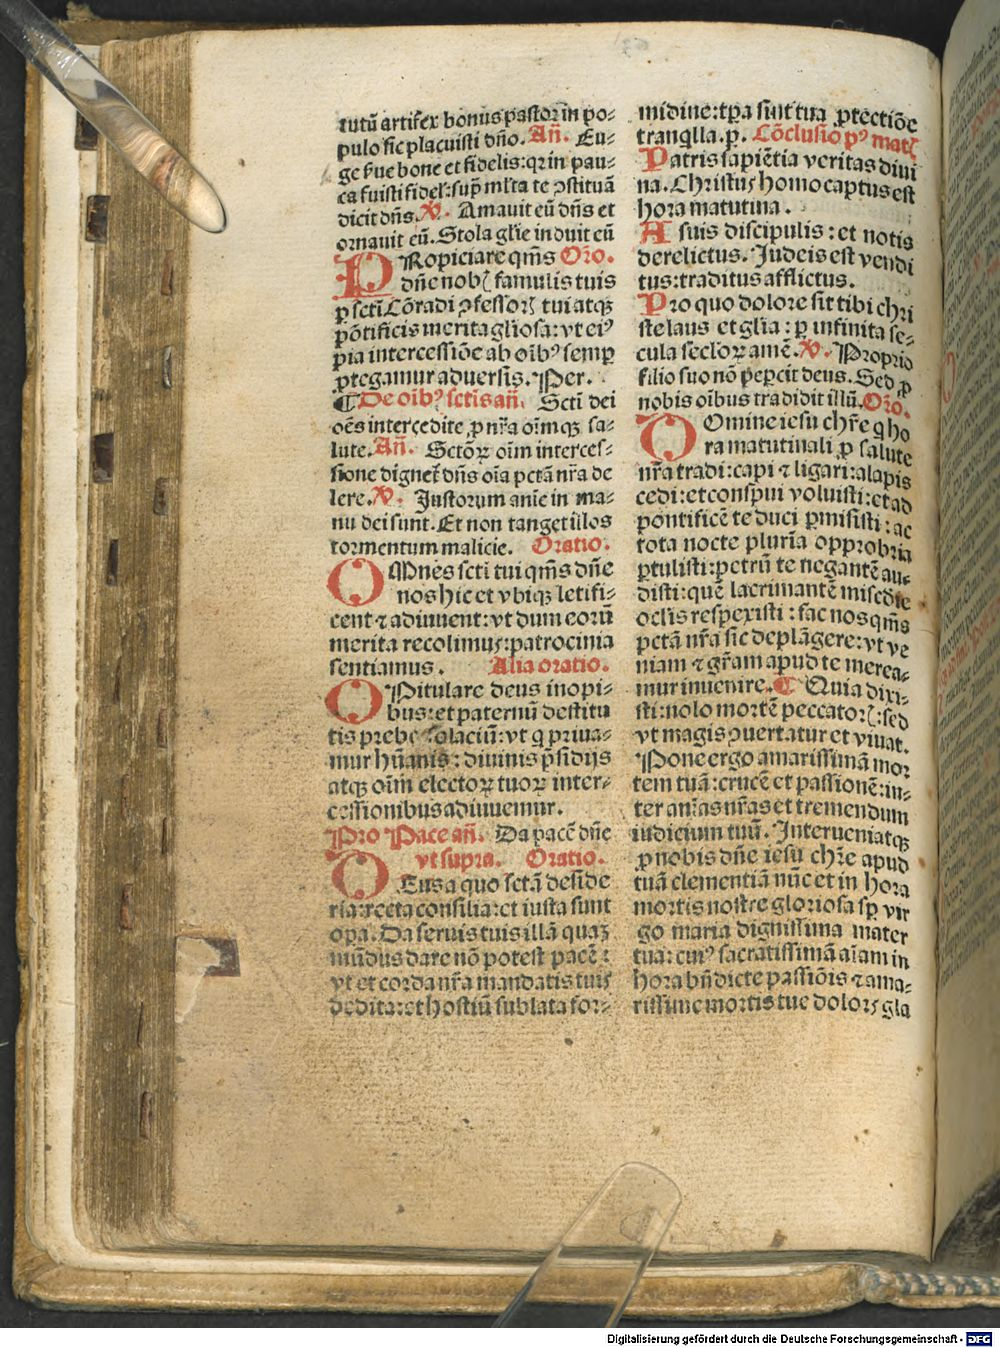 tutū artifex bonus pastor in po-
pulo sic placuisti dño. Añ. Eu-
ge ẜue bone et fidelis: qꝛ in pau-
ca fuisti fidel': sup̄ ml̄ta te ꝯstituā
dicit dñs. V. Amauit eū dñs et
ornauit eū. Stola gl̄ie induit eū
PRopiciare qm̄s Or̄o.
dñe nob̄ famulis tuis
ꝑ scti Cōradi ꝯfessoꝝ tui atqꝫ
pōtificis merita gl̄iosa: vt eiꝰ
pia intercessiōe ab oib̄ꝰ semꝑ
ꝓtegamur aduersis. Per.
¶ De oib̄ꝰ sctīs añ. Sctī dei
oēs intercedite ꝓ nr̄a oīmqꝫ sa-
lute. Añ. Sctōꝝ oīm interces-
sione dignet̄ dñs oīa pctā nr̄a de
lere. V. Justorum anīe in ma-
nu dei sunt. Et non tanget illos
tormentum malicie. Oratio.
OMnes scti tui qm̄s dñe
nos hic et vbiqꝫ letifi-
cent ⁊ adiuuent: vt dum eorū
merita recolimus: patrocinia
sentiamus. Alia oratio.
OPitulare deus inopi-
bus: et paternū destitu
tis prebe solaciū: vt q̄ priua-
mur hūanis: diuinis p̄sidijs
atqꝫ oīm electoꝝ tuoꝝ inter-
cessionibus adiuuemur.
Pro Pace añ. Da pacē dñe
vt supra. Oratio.
DEus a quo sctā deside
ria: recta consilia: et iusta sunt
opa. Da seruis tuis illā quaꝫ
mūdus dare nō potest pacē:
vt et corda nr̄a mandatis tuis
dedita: et hostiū sublata for-
midine: tp̄a sint tua ꝓtectiōe
tranq̄lla. p. Cōclusio pꝰ matꝭ
Patris sapiētia veritas diui
na. Christus homo captus est
hora matutina.
A suis discipulis: et notis
derelictus. Judeis est vendi
tus: traditus afflictus.
Pro quo dolore sit tibi chri
ste laus et glīa: ꝑ infinita se-
cula secl̄oꝝ amē. V. Proprio
filio suo nō peꝑcit deus. Sed ꝓ
nobis oībus tradidit illū. Or̄o.
DOmine iesu chr̄e q̄ ho
ra matutinali ꝓ salute
nr̄a tradi: capi ⁊ ligari: alapis
cedi: et conspui voluisti: et ad
pontificē te duci ꝑmisisti: ac
tota nocte plurīa opprobria
ꝑtulisti: petrū te negantē au-
disti: quē lacrimantē miscd̄ie
ocl̄is respexisti: fac nos qm̄s
pctā nr̄a sic deplāgere: vt ve
niam ⁊ gr̄am apud te merea-
mur inuenire. ¶ Quia dixi-
sti: nolo mortē peccatoꝝ: sed
vt magis ꝯuertatur et viuat.
Pone ergo amarissimā mor
tem tuā: crucē et passionē: in-
ter anīas nr̄as et tremendum
iudicium tuū. Interueniatqꝫ
ꝓ nobis dñe iesu chr̄e apud
tuā clementiā nūc et in hora
mortis nostre gloriosa sp̄ vir
go maria dignissima mater
tua: cuiꝰ sacratissimā aīam in
hora bn̄dicte passiōis ⁊ ama-
rissime mortis tue doloꝝ gla
Digitalisierung gefördert durch die Deutsche Forschungsgemeinschaft - DFG